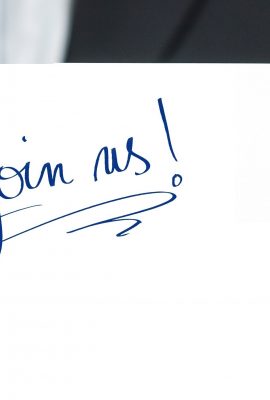 oin us!